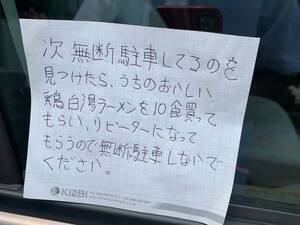 次無断駐車してるのを
見つけたら、うちのおいしい
鶏白湯ラーメンを10食買って
もらい、リピーターになって
もらうので無断駐車しないで
ください。
KiZBI